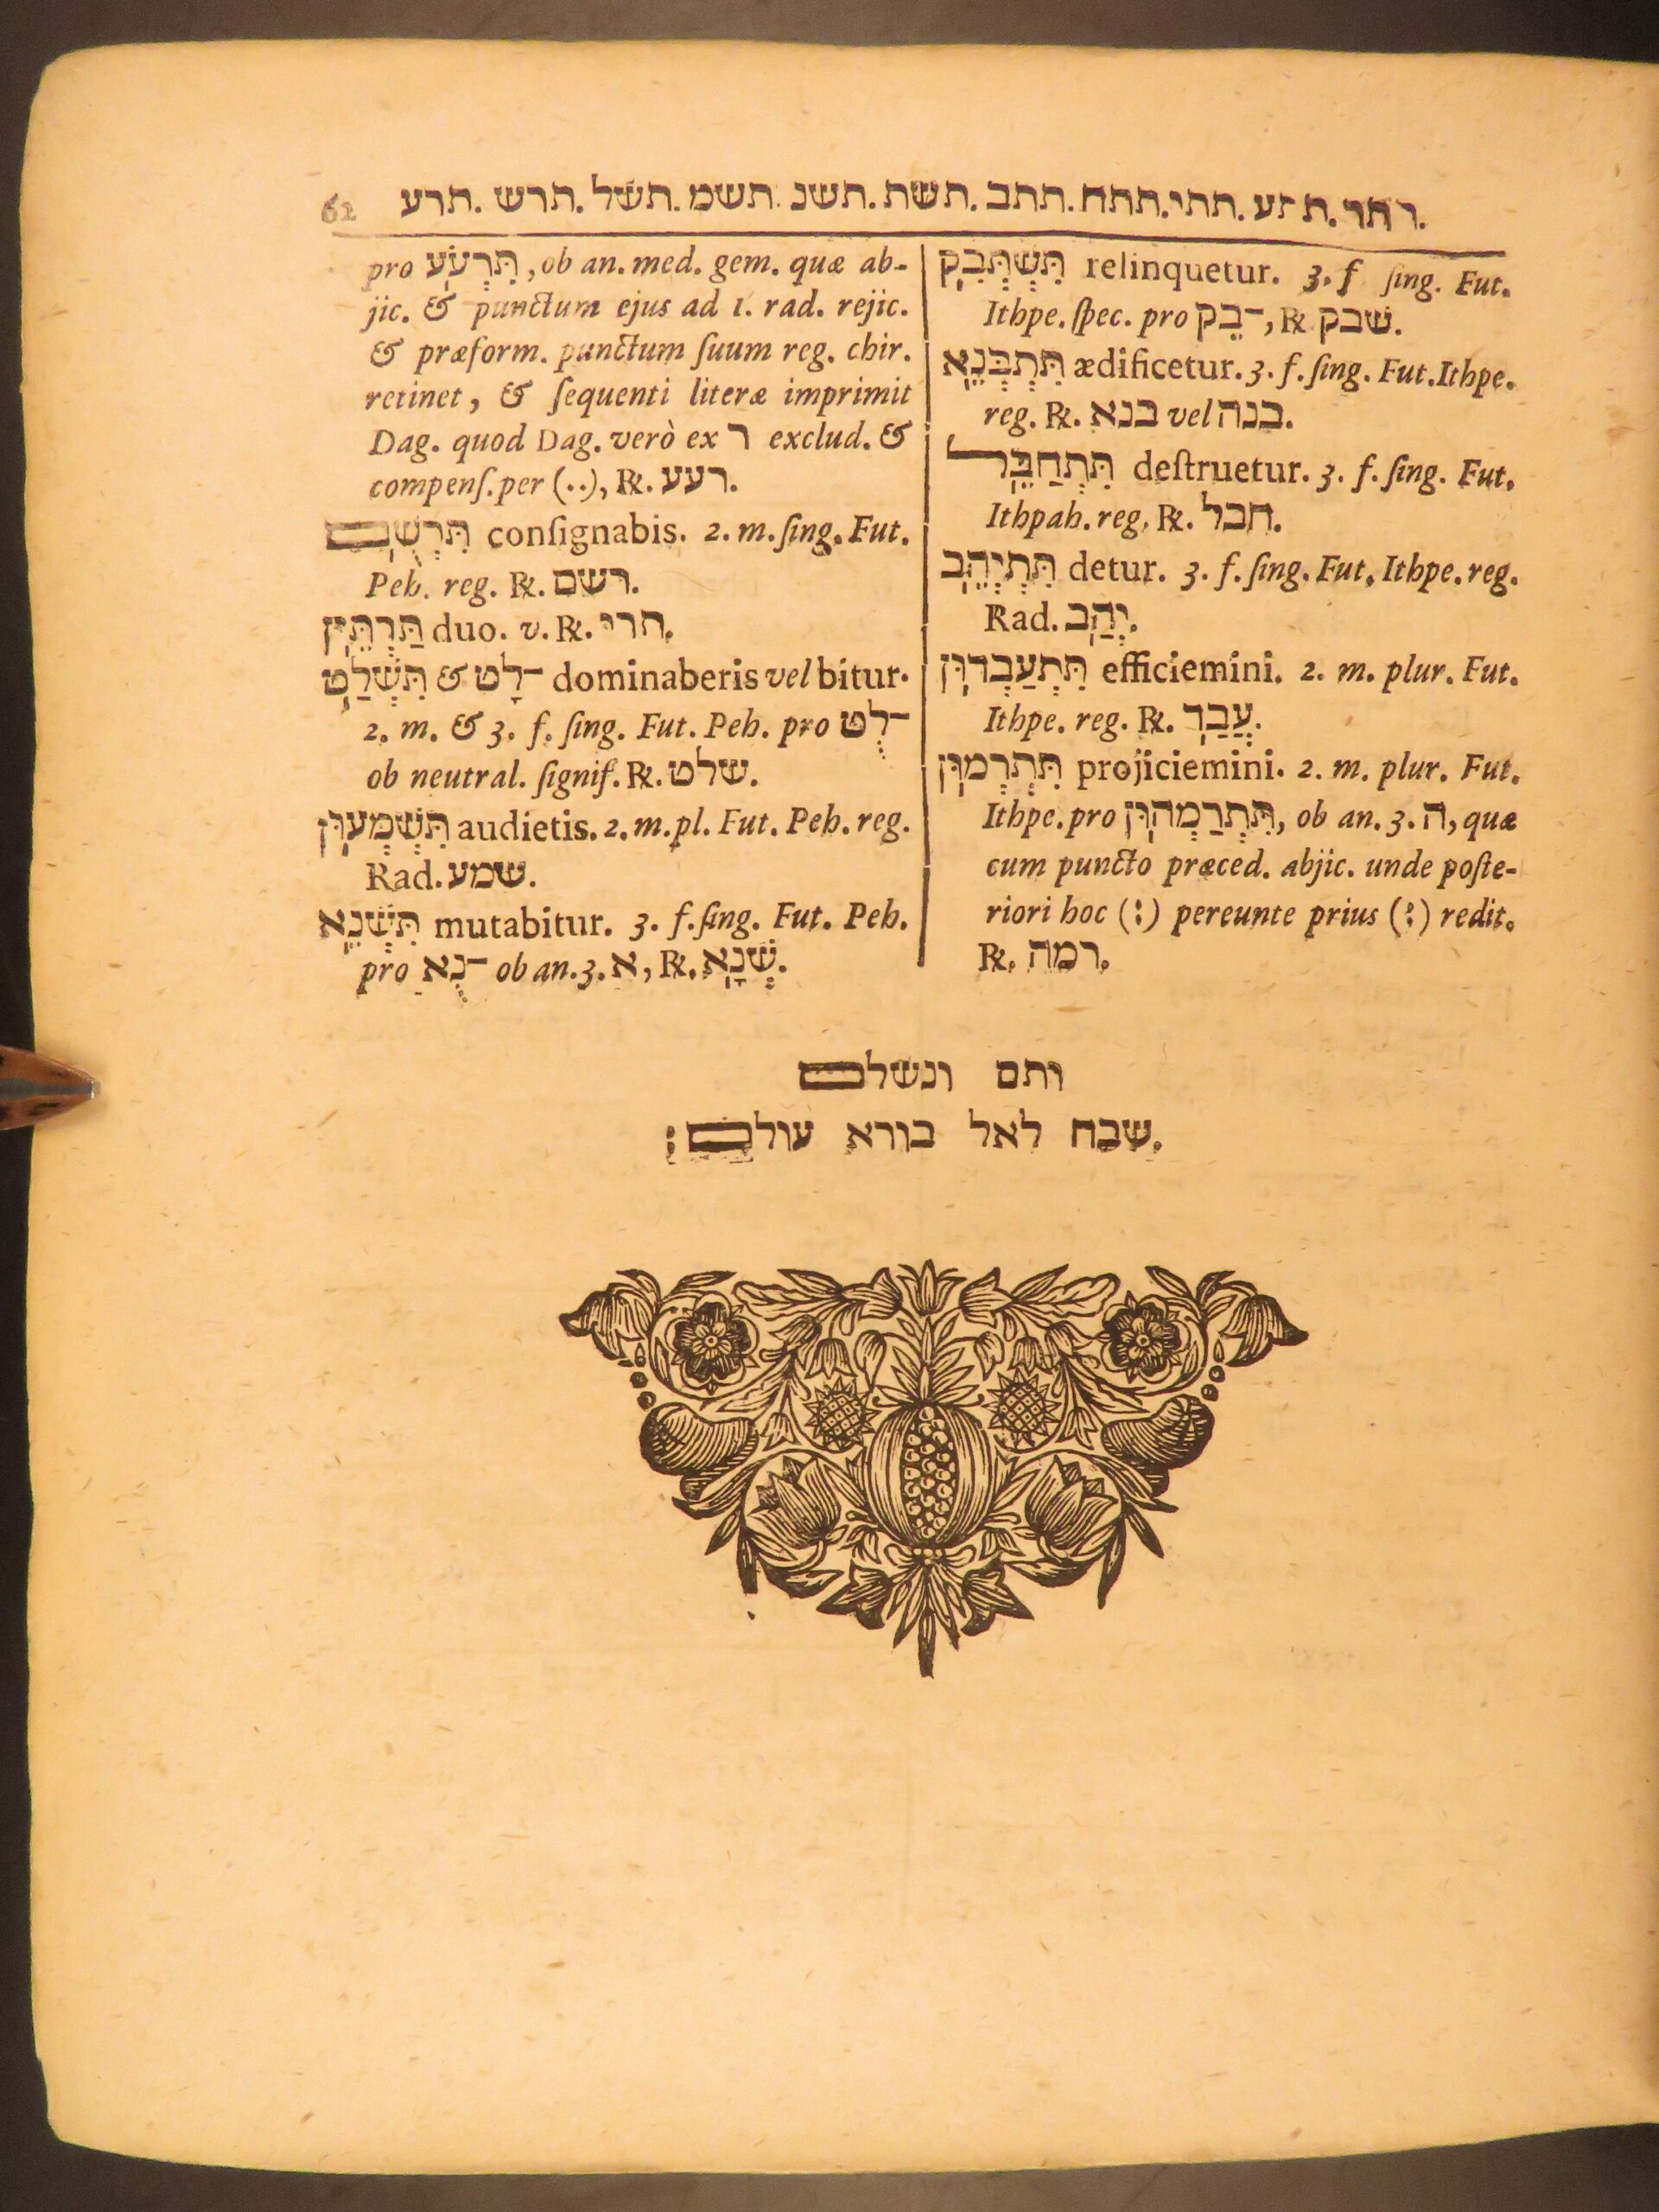 62 תרע .תרש .תשל .תשמ .תשנ .תשת .תתב .תתח .תתי
pro תִּרְעֹע, ob an. med. gem. quæ ab-
jic. & punctum ejus ad 1. rad. rejic.
& præform. punctum ſuum reg. chir.
retinet, & ſequenti literæ imprimit
Dag. quod Dag. verò ex ר exclud. &
compenſ. per (..), ℞. רעע.
תִּרְשֻׁם conſignabis. 2. m. ſing. Fut.
Peh. reg. ℞. רשם.
תַּרְתֵּין duo. v. ℞. תרי.
תִּשְׁלַט & ־לָט dominaberis vel bitur.
2. m. & 3. f. ſing. Fut. Peh. pro ־לֻט
ob neutral. ſignif. ℞. שלט.
תִּשְׁמְעוּן audietis. 2. m. pl. Fut. Peh. reg.
Rad. שמע.
תִּשְׁנֵא mutabitur. 3. f. ſing. Fut. Peh.
pro ־נֻא ob an. 3. א, ℞. שְׁנָא.
תִּשְׁתְּבִק relinquetur. 3. f ſing. Fut.
Ithpe. ſpec. pro ־בֵק, ℞. שבק.
תִּתְבְּנֵא ædificetur. 3. f. ſing. Fut. Ithpe.
reg. ℞. בנא vel בנה.
תִּתְחַבַּל deſtruetur. 3. f. ſing. Fut.
Ithpah. reg. ℞. חבל.
תִּתְיְהֵב detur. 3. f. ſing. Fut. Ithpe. reg.
Rad. יְהַב.
תִּתְעַבְדוּן efficiemini. 2. m. plur. Fut.
Ithpe. reg. ℞. עֲבַד.
תִּתְרְמוּן projiciemini. 2. m. plur. Fut.
Ithpe. pro תִּתְרַמְהוּן, ob an. 3. ה, quæ
cum puncto præced. abjic. unde poſte-
riori hoc (:) pereunte prius (:) redit.
℞. רמה.
ותם ונשלם
שבח לאל בורא עולם: